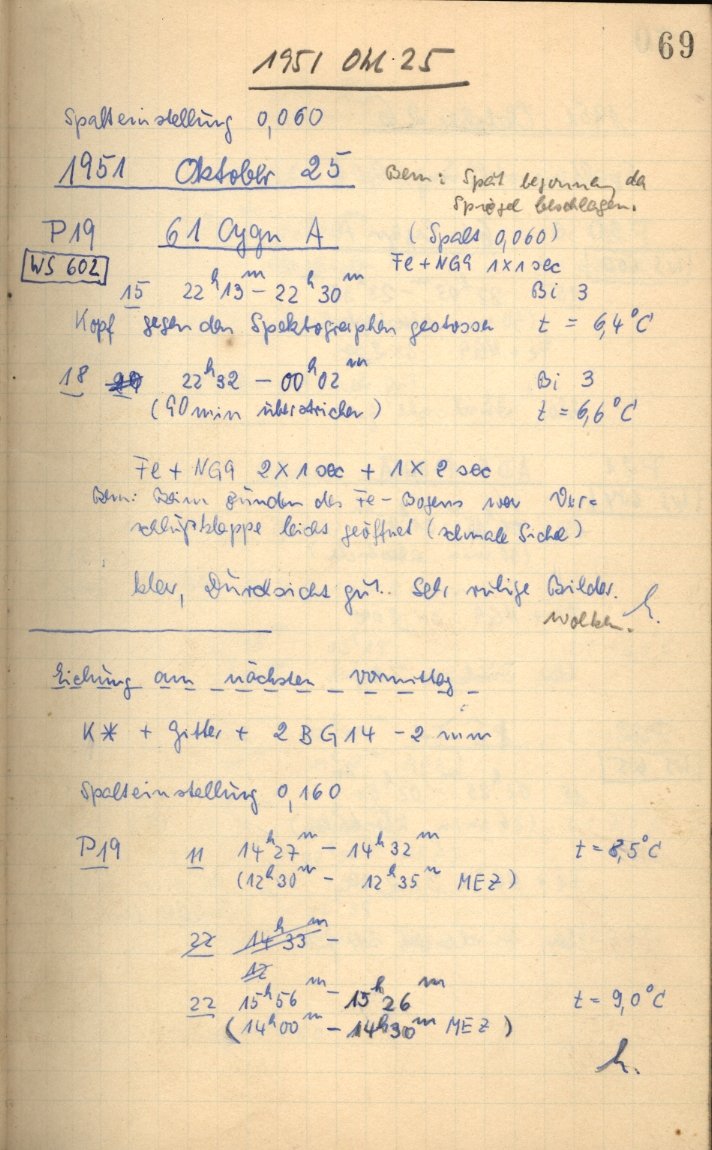 69
1951 Okt. 25
Spalteinstellung 0,060
1951 Oktober 25
Bem: Spät begonnen, da
Spiegel beschlagen.
P19 61 Cygn A (Spalt 0,060)
WS 602
Fe + NG9 1x1 sec
15 22h13m – 22h30m Bi 3
Kopf gegen den Spektographen gestossen t = 6,4°C
18 22h32 – 00h02m Bi 3
(90 min überstrichen) t = 6,6°C
Fe + NG9 2x1 sec + 1x2 sec
Bem: Beim Zünden des Fe-Bogens war Ver=
schlußklappe leicht geöffnet (schmale Sichel)
klar, Durchsicht gut. Sehr ruhige Bilder.
Wolken.
Eichung am nächsten Vormittag
K* + Gitter + 2 BG14 – 2 mm
Spalteinstellung 0,160
P19 11 14h27m – 14h32m t = 8,5°C
(12h30m – 12h35m MEZ)
22 14h33m –
12
22 15h56m – 15h26m t = 9,0°C
(14h00m – 14h30m MEZ)